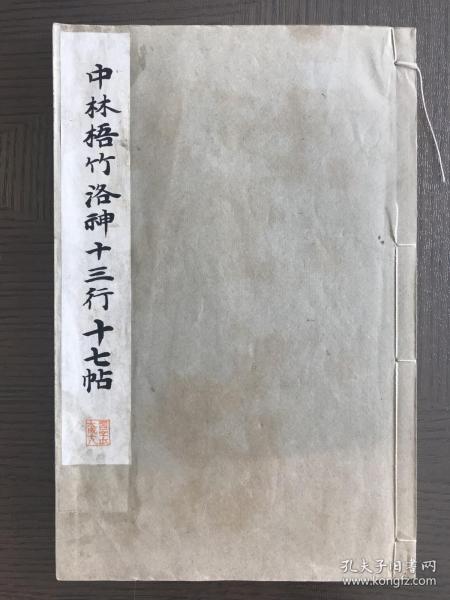 中林梧竹洛神十三行十七帖
孔夫子旧书网
www.kongfz.com